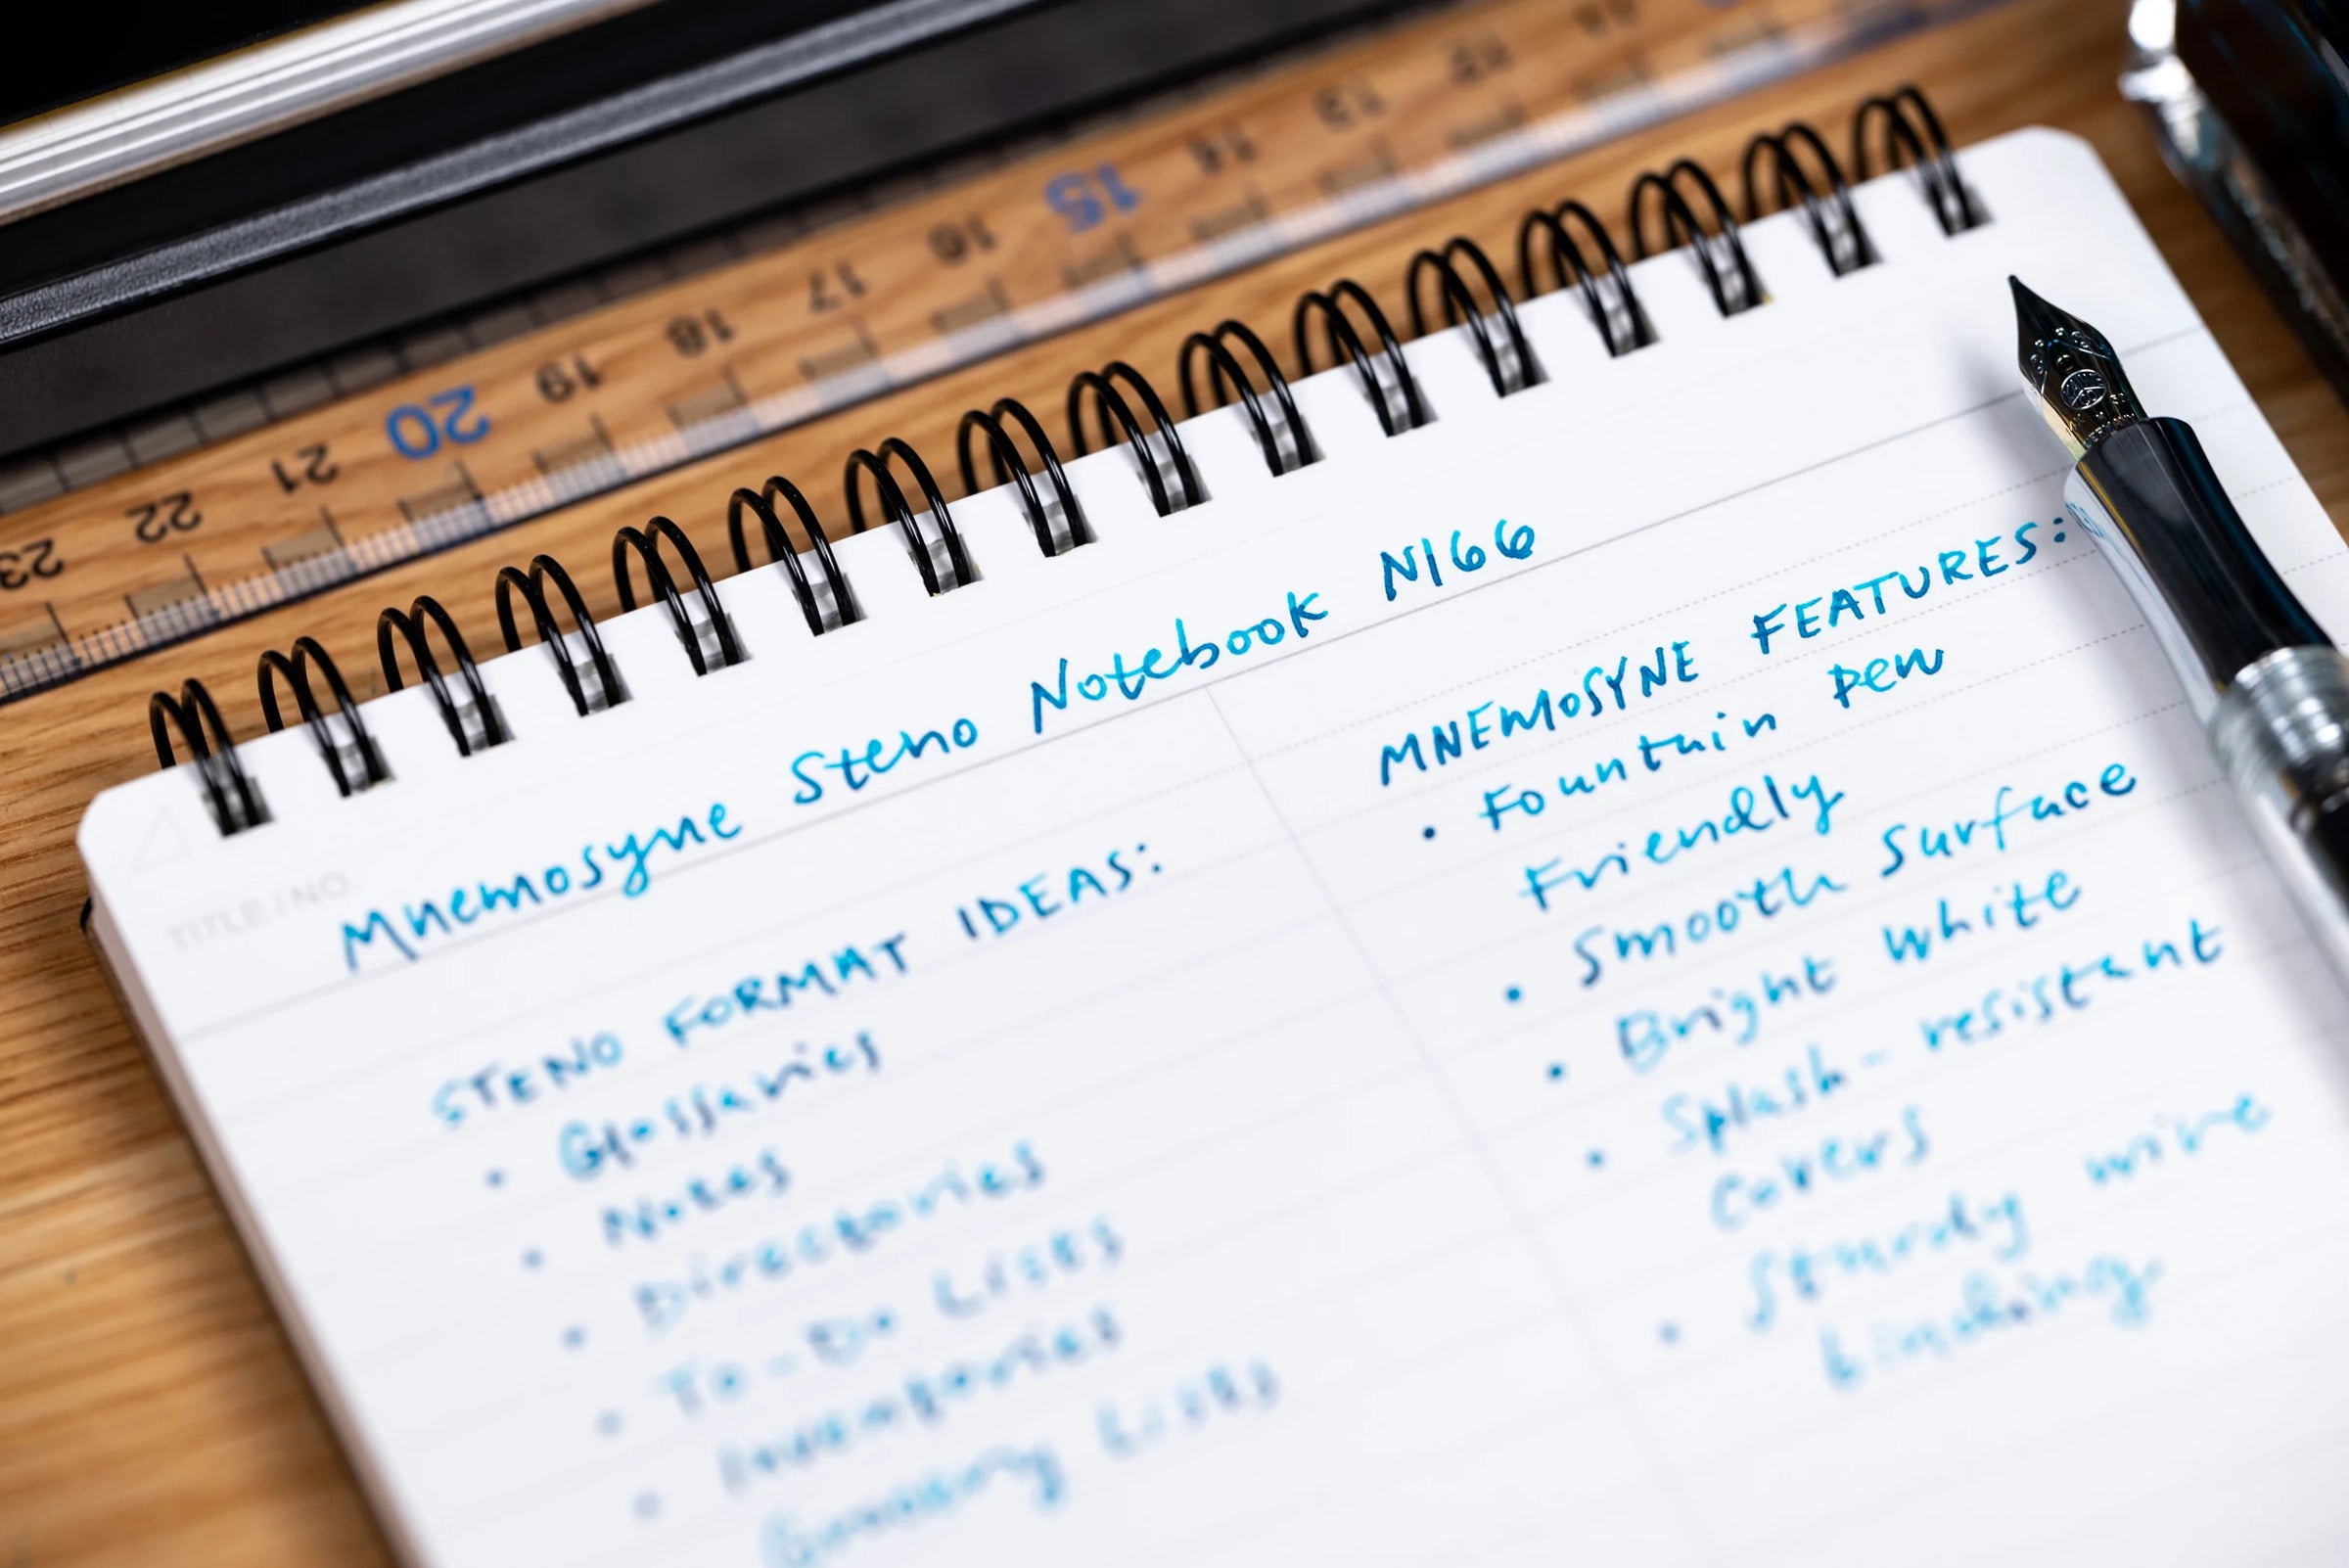 23 22 21 20 19 18 17 16 15 14 13 12
TITLE / NO.
Mnemosyne Steno Notebook N166
STENO FORMAT IDEAS:
• Glossaries
• Notes
• Directories
• To-Do Lists
• Inventories
• Grocery Lists
MNEMOSYNE FEATURES:
• Fountain pen
Friendly
• Smooth Surface
• Bright White
• Splash-resistant
Covers
• Sturdy wire
binding